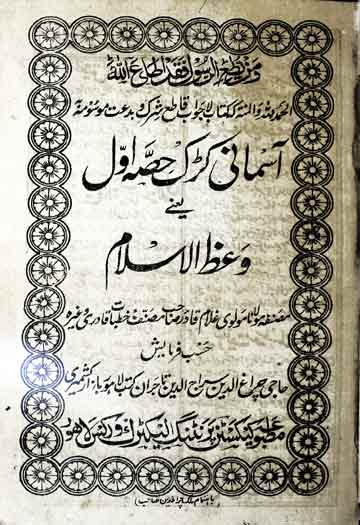 ومن یطع الرسول فقد اطاع اللہ
الحمد للہ والمنہ کہ کتاب لاجواب قاطع شرک و بدعت موسومہ
آسمانی کڑک حصہ اول
یعنے
وعظ الاسلام
مصنفہ مولانا مولوی غلام قادر صاحب مصنف خطبات قادری وغیرہ
حسب فرمایش
حاجی چراغ الدین سراج الدین تاجران کتب لاہور بازار کشمیری
مطبوعہ پرنٹنگ ورکس لاہور